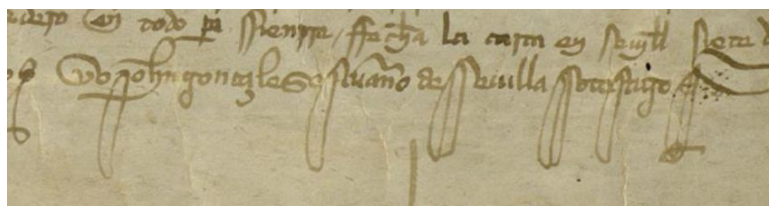 en todo pa sienpre ffecha la carta en seuill siete d
Yo johan gonçales escriuano de Seuilla so testigo